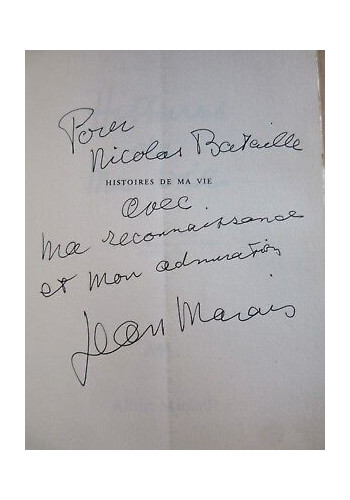 Pour
Nicolas Bataille
HISTOIRES DE MA VIE
avec
ma reconnaissance
et mon admiration
Jean Marais